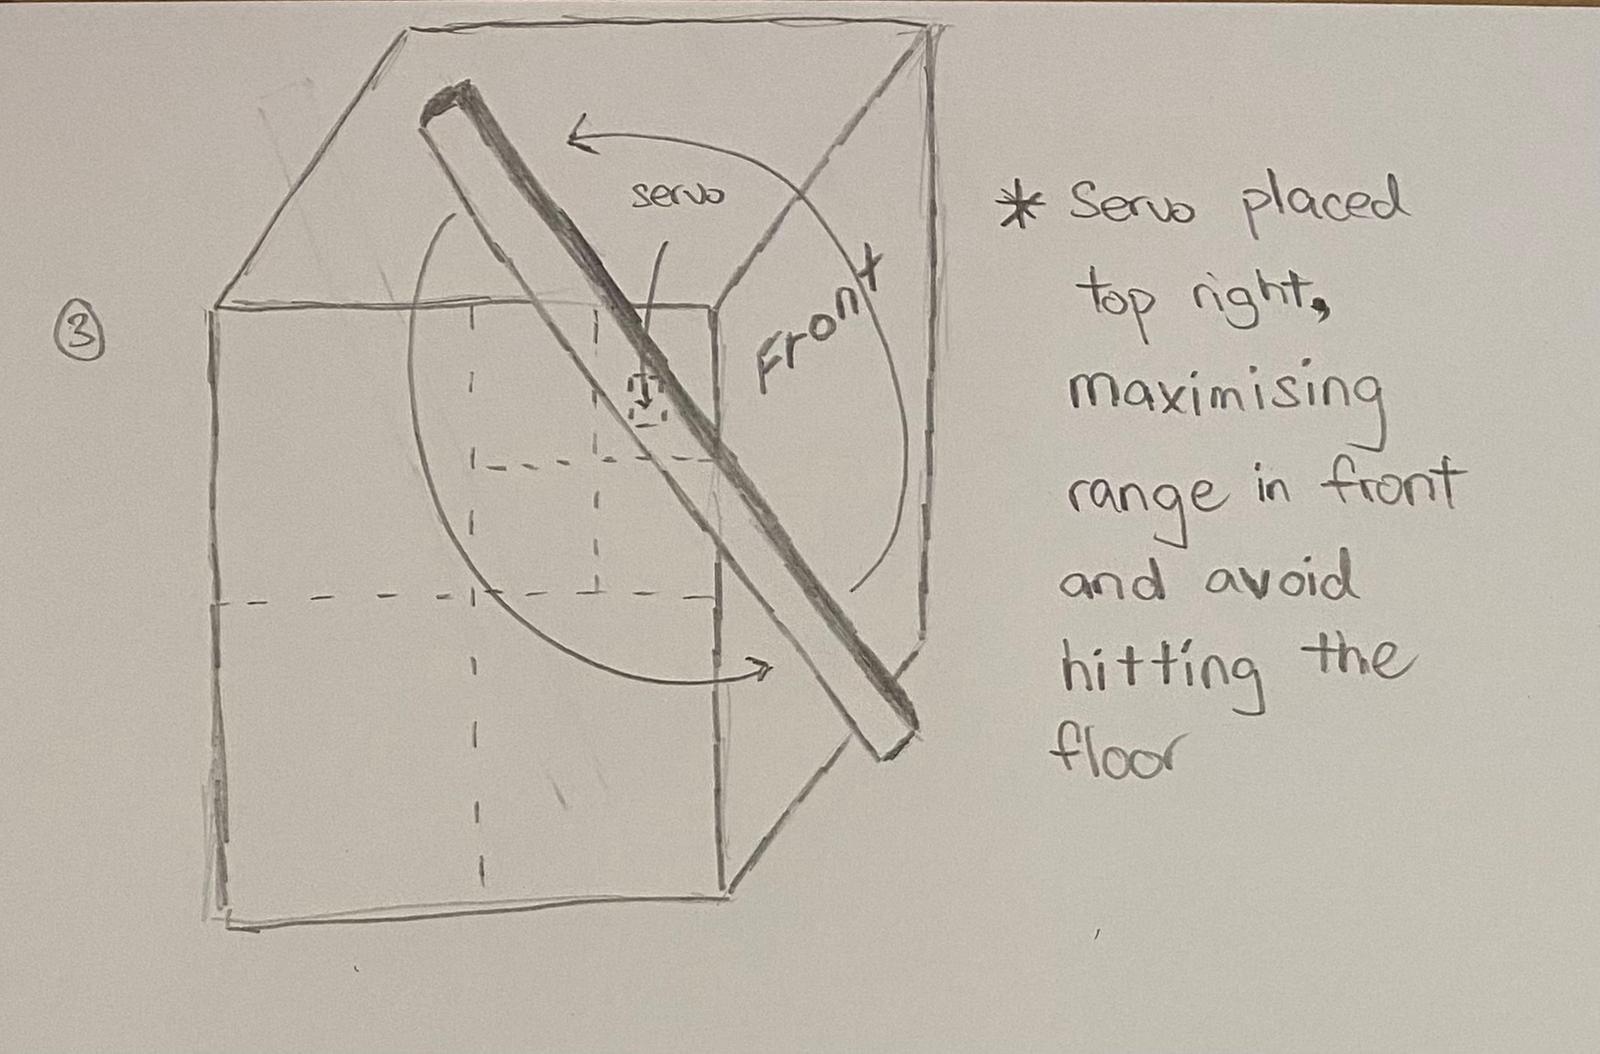 servo
Front
3
* Servo placed
top right,
maximising
range in front
and avoid
hitting the
floor